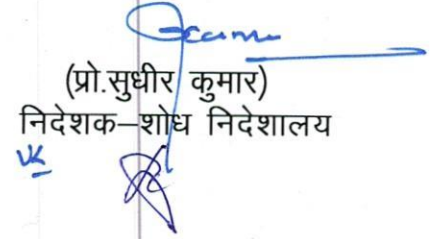 (प्रो.सुधीर कुमार)
निदेशक–शोध निदेशालय
VK